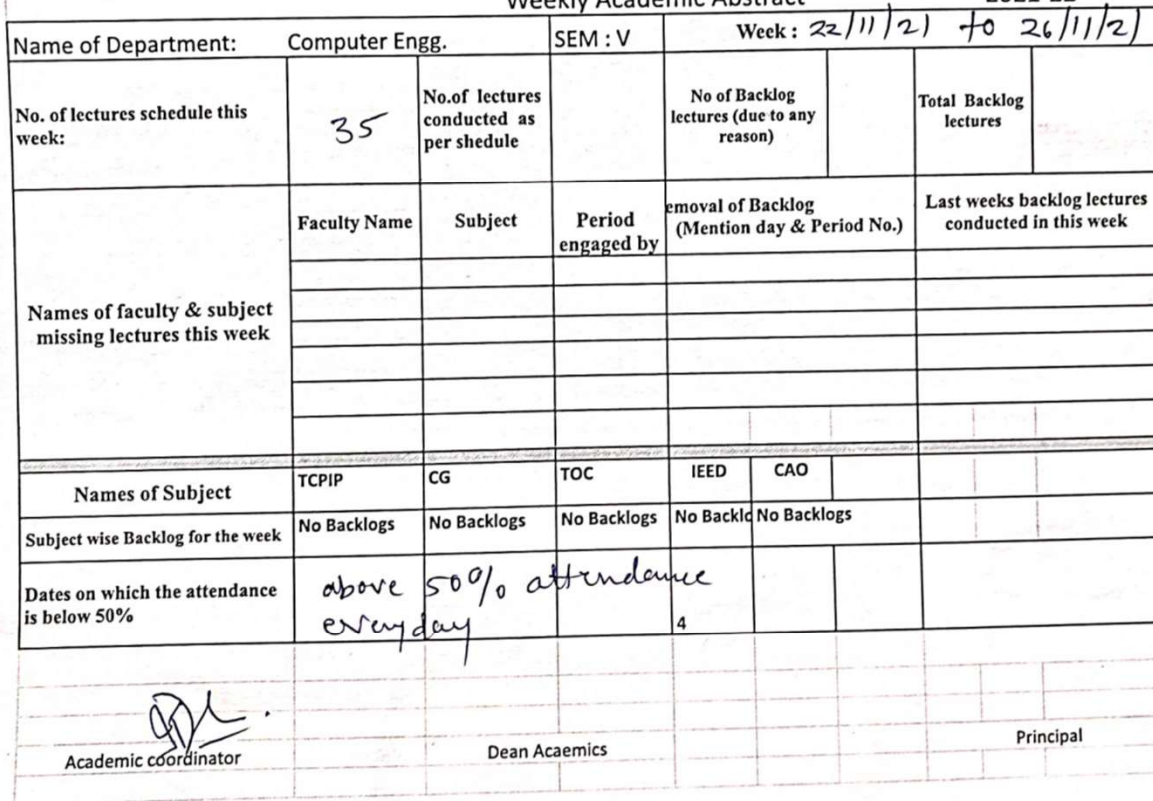 Weekly Academic Abstract
Name of Department: Computer Engg. SEM : V Week : 22/11/21 to 26/11/21
No. of lectures schedule this week: 35 No.of lectures conducted as per shedule No of Backlog lectures (due to any reason) Total Backlog lectures
Names of faculty & subject missing lectures this week
Faculty Name Subject Period engaged by emoval of Backlog (Mention day & Period No.) Last weeks backlog lectures conducted in this week
Names of Subject TCPIP CG TOC IEED CAO
Subject wise Backlog for the week No Backlogs No Backlogs No Backlogs No Backlo No Backlogs
Dates on which the attendance is below 50% above 50% attendance everyday 4
Academic coordinator Dean Acaemics Principal